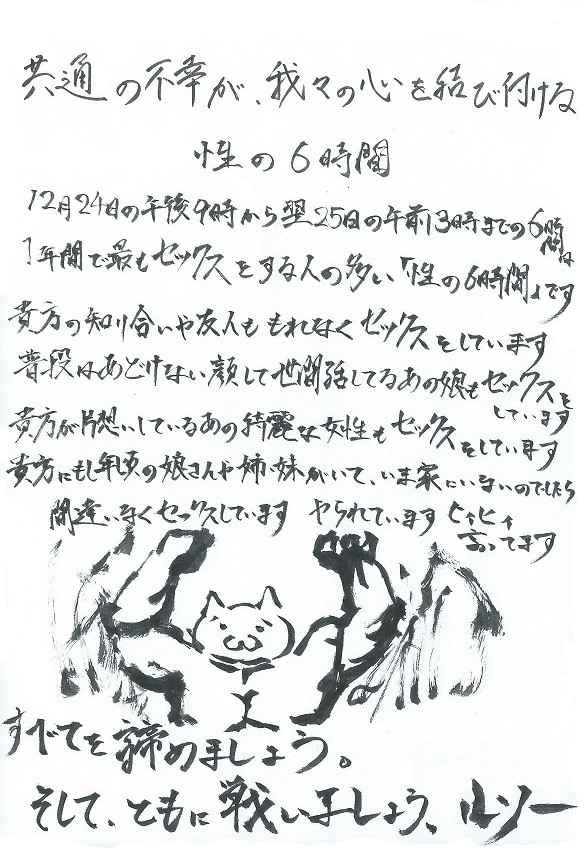 共通の不幸が、我々の心を結び付ける
性の6時間
12月24日の午後9時から翌25日の午前3時までの6時間は
1年間で最もセックスをする人の多い「性の6時間」です
貴方の知り合いや友人ももれなくセックスをしています
普段はあどけない顔して世間話してるあの娘もセックスをしています
貴方が片想いしているあの綺麗な女性もセックスをしています
貴方にもし年頃の娘さんや姉妹がいて、いま家にいないのでしたら
間違いなくセックスしています ヤられています ヒィヒィ言ってます
すべてを諦めましょう。
そして、ともに戦いましょう、ルソー